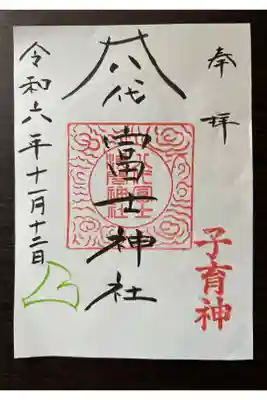 奉拝
子育神
富士神社
令和六年十一月十二日